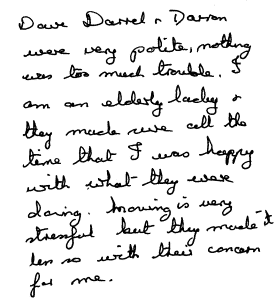 Dave Darrel & Darron
were very polite, nothing
was too much trouble. I
am an elderly lady &
they made sure all the
time that I was happy
with what they were
doing. Moving is very
stressful but they made it
less so with their concern
for me.